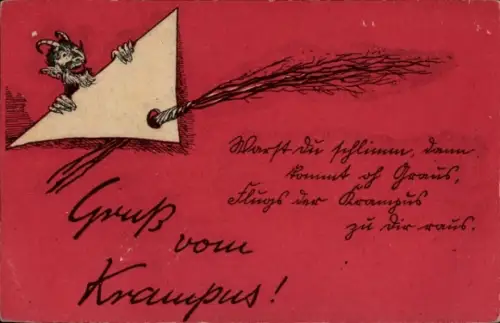 Warst du schlimm, dann
kommt oh Graus,
Flugs der Krampus
zu dir raus.
Gruß
vom
Krampus!